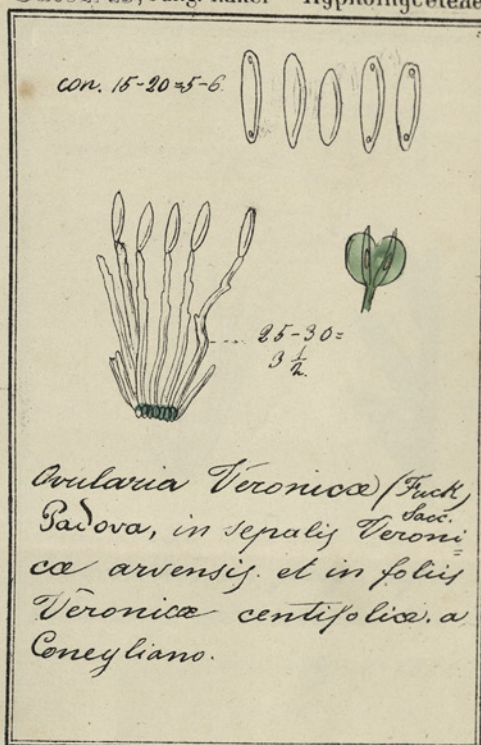 Hyphomyceteae
con. 15-20=5-6
25-30=
3 1/2.
Ovularia Veronicæ (Fuck)
Sacc.
Padova, in sepalis Veroni=
cæ arvensis. et in foliis
Veronicæ centifoliæ. a
Conegliano.